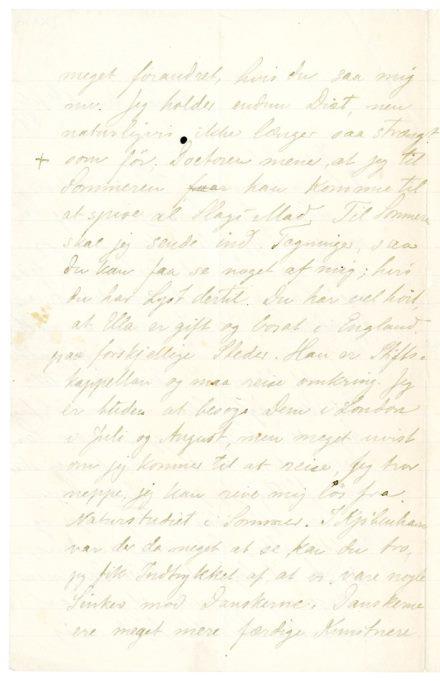 meget forandret, hvis du saa mig
nu. Jeg holder endnu Diæt, men
naturligvis ikke længer saa strængt
+ som før; Doctoren mener, at jeg til
Sommeren faar kan komme til
at spise al Slags Mad. Til Sommeren
skal jeg sende ind Tegninger, saa
du kan faa se noget af mig; hvis
du har Lyst dertil. Du har vel hørt,
at Ulla er gift og bosat i England
paa forskjellige Steder. Han er Skibs-
kappellan og maa reise omkring. Jeg
er buden at besøge Dem i London
i Juli og August, men meget uvist
om jeg kommer til at reise, Jeg tror
neppe, jeg kan rive mig løs fra
Naturstudiet i Sommer. I Kjøbenhavn
var der da meget at se kan du tro,
jeg fik Indtrykket af at vi vare nogle
Sinker mod Danskerne. Danskerne
ere meget mere færdige Kunstnere